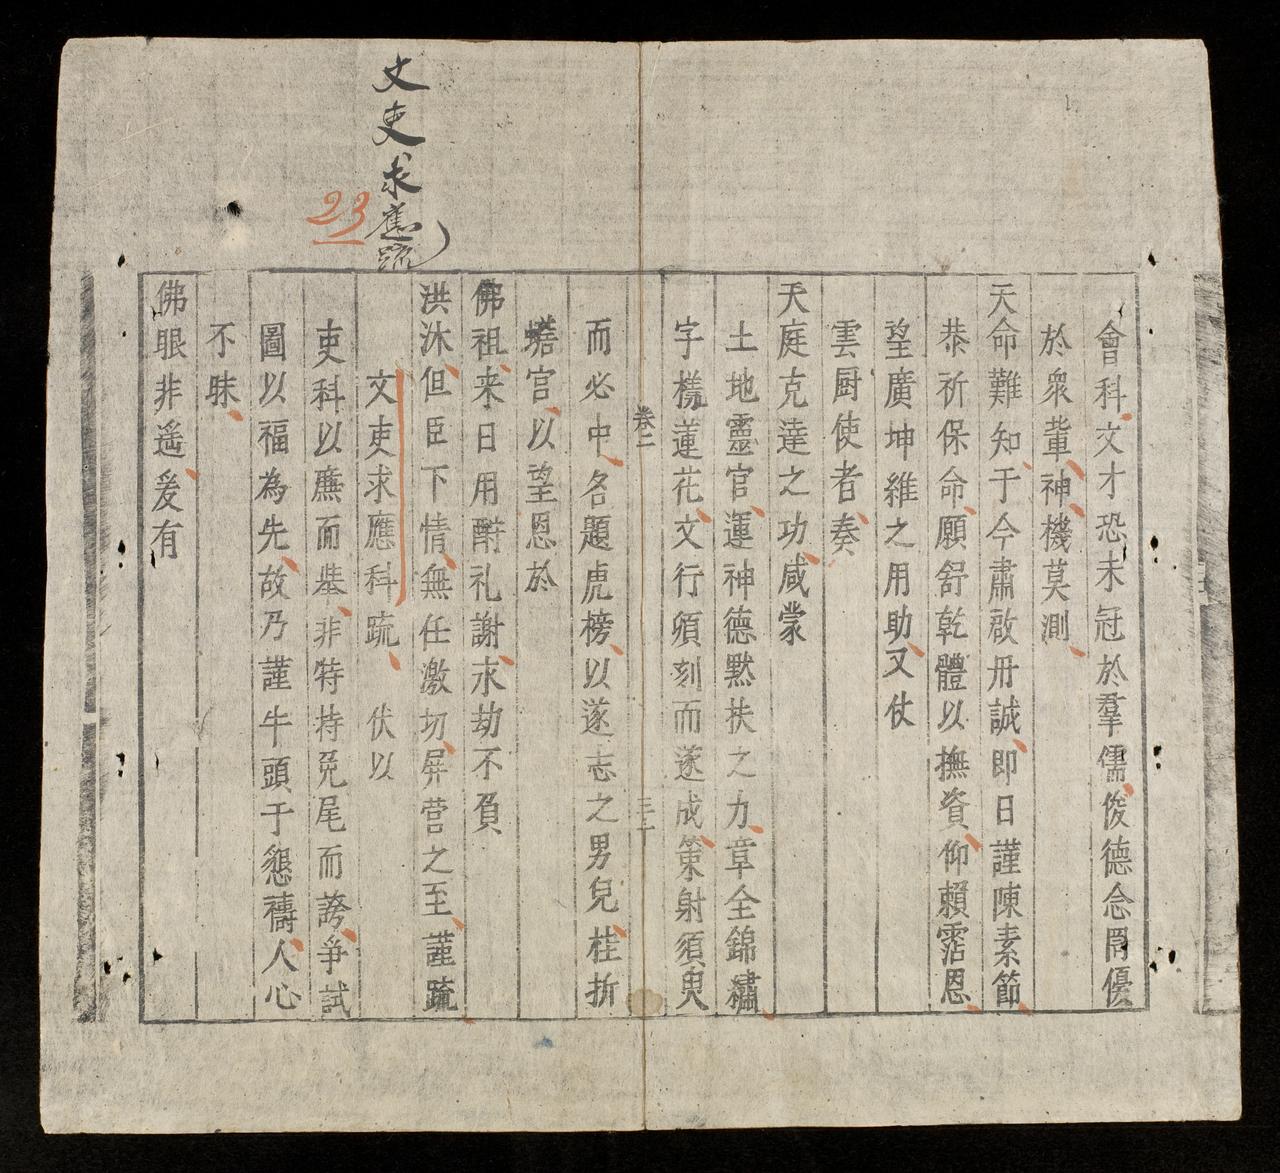 會科文才恐未冠於羣儒俊德念罔優
於衆輩神機莫測
天命難知于今肅啟丹誠即日謹陳素節
恭祈保命願舒乾體以撫資仰賴霑恩
望廣坤維之用助又仗
雲厨使者奏
天庭克達之功咸蒙
土地靈官運神德黙扶之力章全錦繡
字樣蓮花文行頃刻而遂成策射須臾
卷二
三十
而必中各題虎榜以遂志之男兒桂折
蟾宫以望恩於
佛祖来日用酧礼謝永劫不負
洪沐但臣下情無任激切屏营之至謹䟽
文吏求應科䟽 伏以
吏科以廉而舉非特持兎尾而誇爭試
圖以福為先故乃謹牛頭于懇禱人心
不昧
佛眼非遥爰有
文吏求舊疏
23